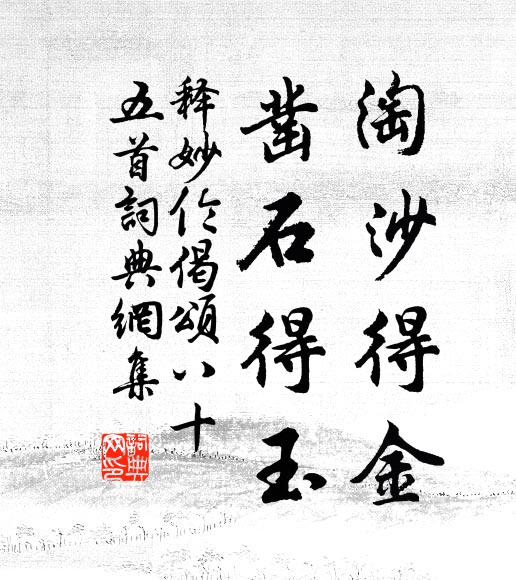 淘沙得金
凿石得玉
释妙伦偈颂八十
五首詞典網集
詞典
网印